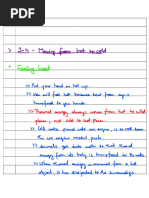 > 3.4 - Moving from hot to cold
* Feeling heat
↳ Put your hand on hot cup.
↳ You will feel hot because heat from cup is transfered to your hand.
↳ Thermal energy always moves from hot to cold place, not cold to hot place.
↳ Cold water poured into can engine, is so cold down
the car engine metal parts.
↳ Animals get into water so that thermal
energy from its body is transfered to the water.
↳ When thermal energy is removed from a hot
object, it has dissipated to the surroundings